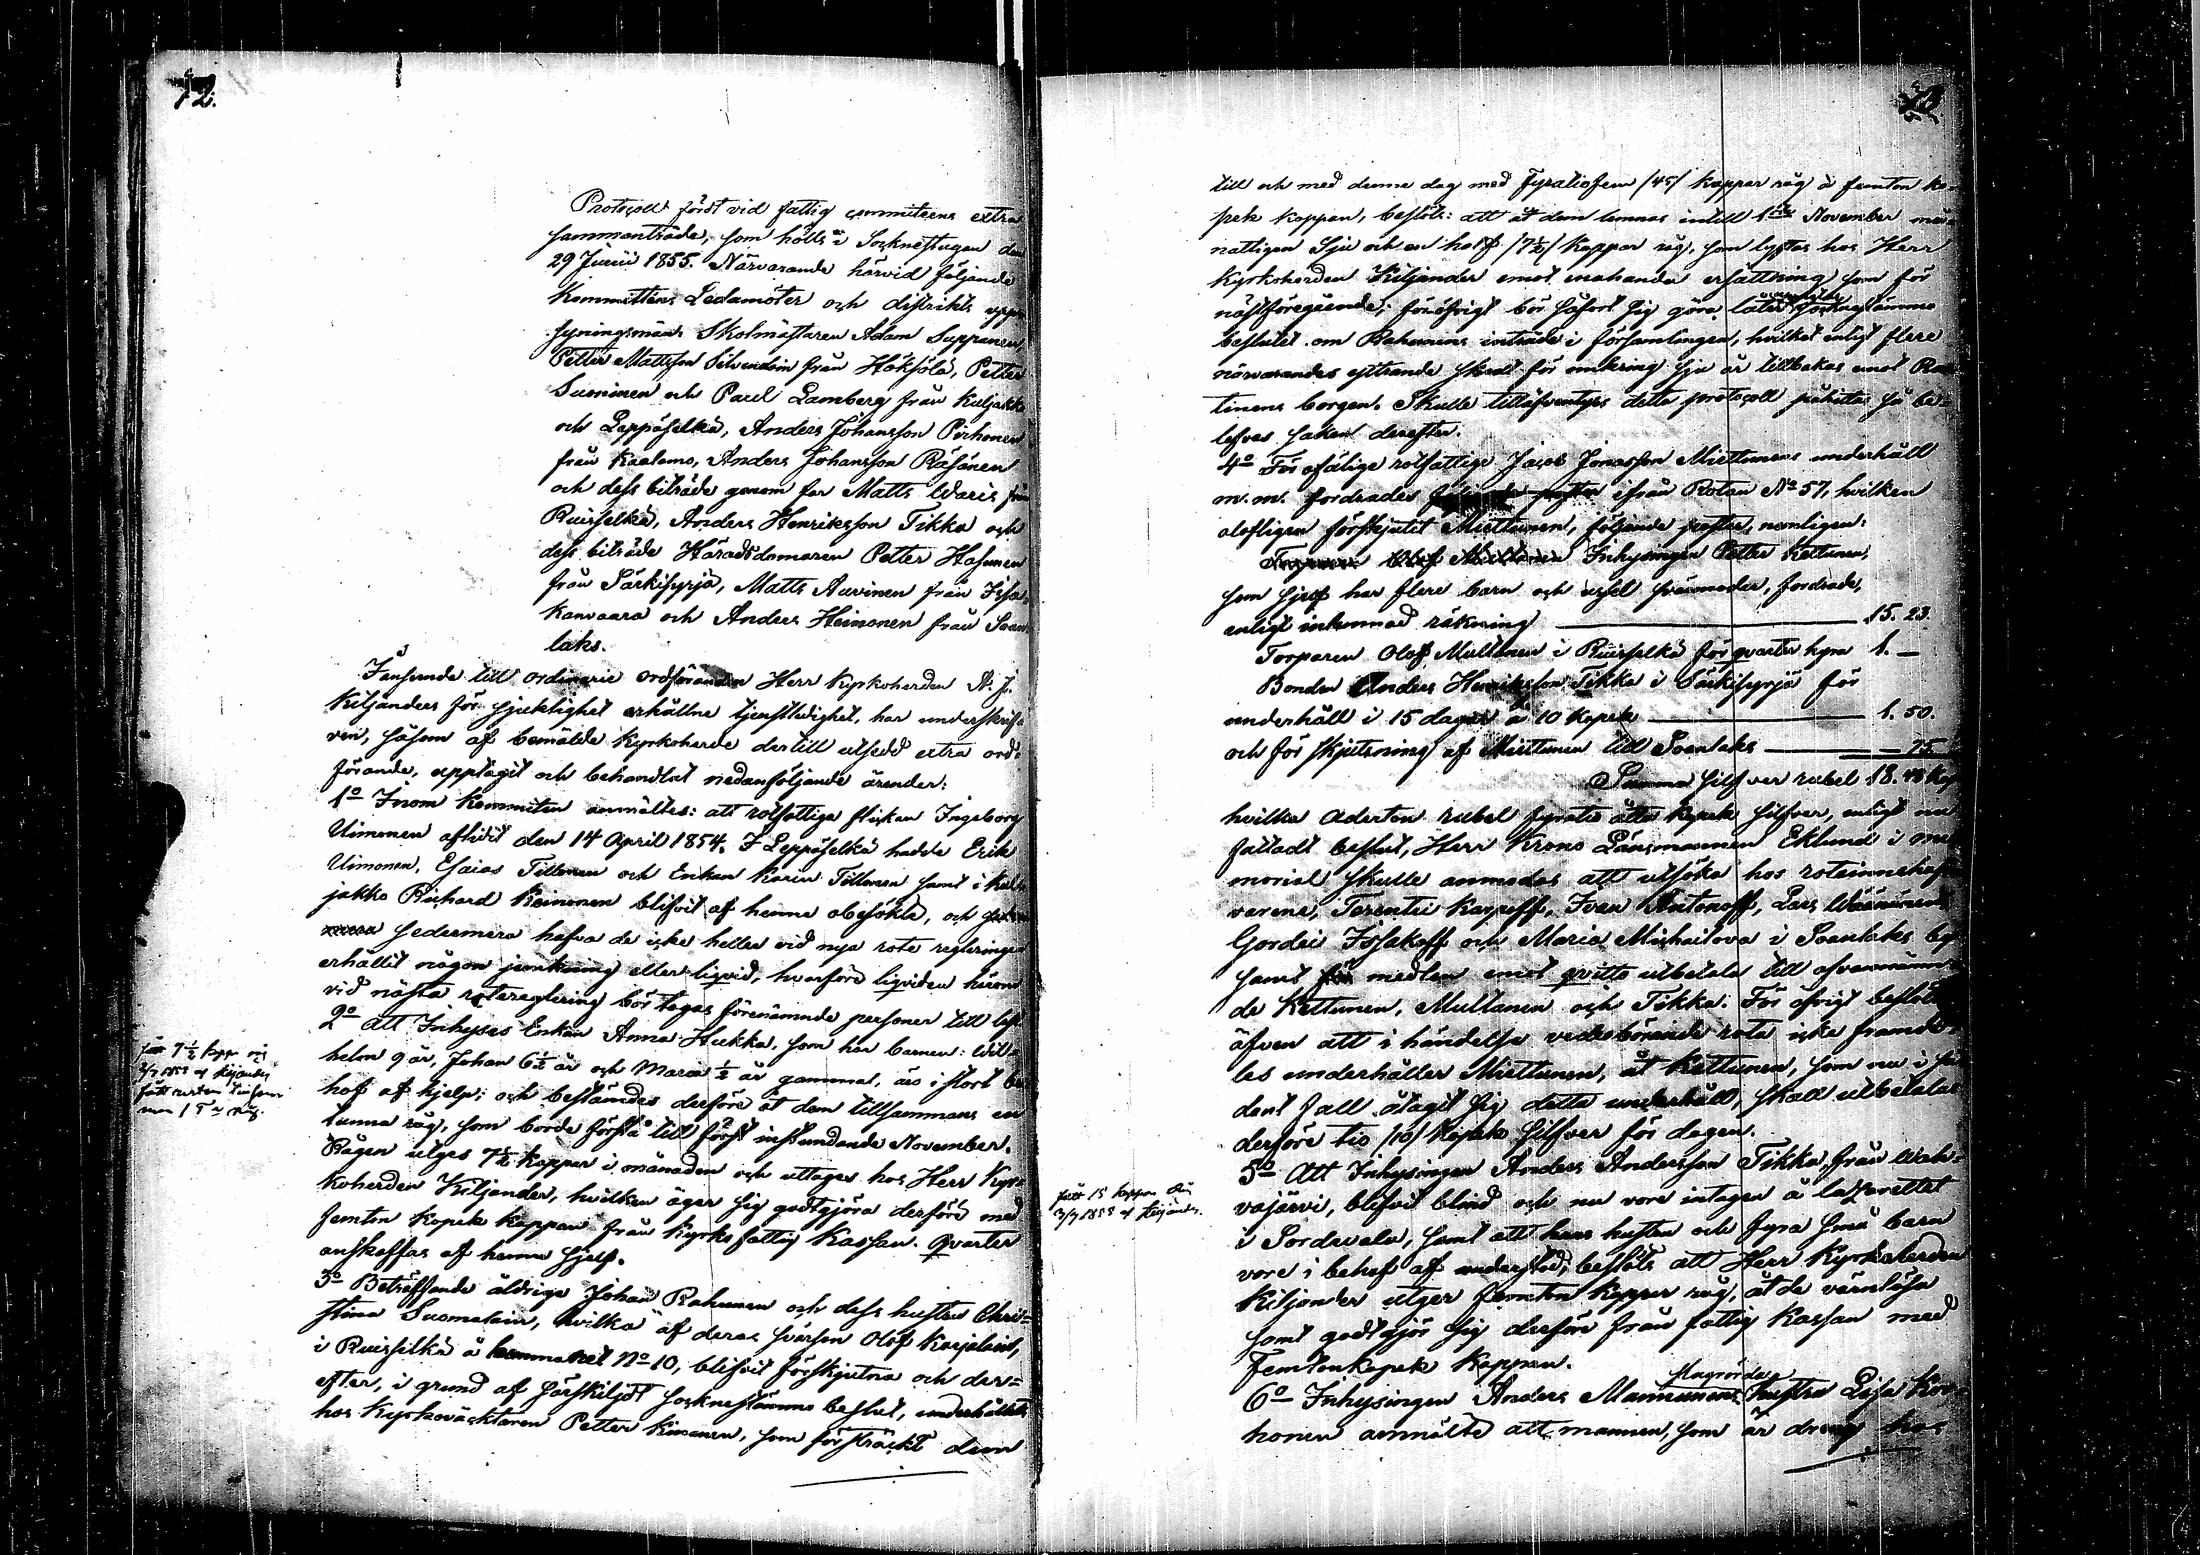 72.
Protocoll fördt vid fattig committeens extra
sammanträde, som hölls i Socknestugan den
29 Junii 1855. Närvarande härvid följande
Kommitténs Ledamöter och distrikts upp-
syningsmän: Skolmästaren Adam Suppanen,
Petter Mattsson Silvendoin från Höksölä, Petter
Suominen och Paul Lamberg från Kuljakko
och Leppäselkä, Anders Johansson Pirhonen
från Kaalamo, Anders Johansson Räsänen
och dess biträde genom for Matts Waris från
Ruisselkä, Anders Henriksson Tikka och
dess biträde Häradsdomaren Petter Hasunen
från Särkisyrjä, Matts Auvinen från Issa-
kanvaara och Anders Heinonen från Soan-
laks.
I anseende till ordinarie ordföranden Herr Kyrkoherden A. J.
Kiljanders för sjuklighet erhållne tjenstledighet, har underskrif-
ven, såsom af bemälde Kyrkoherde dertill utsedd extra ord-
förande, upptagit och behandlat nedanföljande ärender:
1o Inom Kommiten anmältes: att rotfattiga flickan Ingeborg
Uimonen aflidit den 14 April 1854. I Leppäselkä hade Erik
Uimonen, Esaias Tillonen och Enkan Karin Tillonen samt i Kul-
jakko Richard Reinonen blifvit af henne obesökte, och
sedermera hafva de icke heller vid nya rote regleringen
erhållit någon jemkning eller liqvid, hvarföre liqviden härom
vid nästa rotereglering bör tagas förenämnde personer till
2o att Inhyses Enkan Anna Hukka, som har barnen: Wil-
helm 9 år, Johan 6½ år och Maria ½ år gammal, äro i stort be-
hof af hjelp; och bestämdes derföre åt dem tillsammans en
tunna råg, som borde förslå till först instundande November.
Rågen utges 7½ kappor i månaden och uttages hos Herr Kyr-
koherden Kiljander, hvilken äger sig godtgöra derföre med
femton kopek kappan från Kyrko fattig Kassan. Qvarter
anskaffas af henne sjelf.
3o Beträffande åldrige Johan Rahunen och dess hustru Chri-
stina Suomalain, hvilka af deras svärson Olof Karjalain,
i Ruisselkä å hemmanet No 10, blifvit förskjutna och der-
efter, i grund af särskiljdt sockenstämmo beslut, underhållits
hos Kyrkoväcktaren Petter Kinonen, som försträckt dem
fått 7½ kapp. råg
2/7 1855 af Kiljander
till och med denne dag med Fyratiofem /45/ kappar råg à femton ko-
pek kappan, beslöts: att åt dem lemnas intill 1sta November må-
natligen sju och en half /7½/ kappar råg, som lyftas hos Herr
Kyrkoherden Kiljander emot enahanda ersättning som för
nästföregående; föröfrigt bör såfort sig göra låter
beslutet om Rahunens inträde i församlingen, hvilket enligt flere
närvarandes yttrande skedt för omkring sju år tillbakas emot
tinens borgen. Skulle tilläfventyrs detta protocoll påhittas så be-
lefvas saken derefter.
4o För ofälige rotfattige Jacob Jonasson Miettunens underhåll
m. m. fordrades ifrån Rotan No 57, hvilken
olofligen förskjutit Miettunen, följande poster, nemligen:
Inhysingen Petter Kettunen,
som sjelf har flere barn och usel svärmoder, fordrade,
enligt inlemnad räkning 15. 23.
Torparen Olof Mullonen i Ruisselkä för qvarter hyra 1. —
Bonden Anders Henriksson Tikka i Särkisyrjä för
underhåll i 15 dagar à 10 kopek 1. 50.
och för skjutsning af Miettunen till Soanlaks — 75.
Summa silfver rubel 18. 48 kop
hvilka Aderton rubel fyratio åtta kopek silfver, enligt nu
fattadt beslut, Herr Krono Länsmannen Eklund i me-
morial skulle anmodas att utsöka hos roteinnehaf-
varene, Terentii Karpoff, Ivan Antonoff, Lars Wäänänen
Gordei Issakoff och Maria Michailova i Soanlaks by
samt medlen emot qvitto utbetala till ofvannämn-
de Kettunen, Mullonen och Tikka. För öfrigt beslöts
äfven att i händelse vederbörande rota icke framde-
les underhåller Miettunen, åt Kettunen, som nu i så-
dant fall åtagit sig detta underhåll, skall utbetalas
derföre tio /10/ kopek silfver för dagen.
5o Att Inhysingen Anders Andersson Tikka, från Wah-
vajärvi, blifvit blind och nu vore intagen å lazzarettet
i Sordavala, samt att hans hustru och fyra små barn
vore i behof af understöd, beslöts att Herr Kyrkoherden
Kiljander utger femton kappar råg, åt de värnlösa
samt godtgör sig derföre från fattig Kassan med
Femtonkopek kappan.
6o Inhysingen Anders Mannunens hustru Lisa Kor-
honen anmälte att mannen, som är dreng hos
fått 15 kappar råg
3/7 1855 af Kiljander.